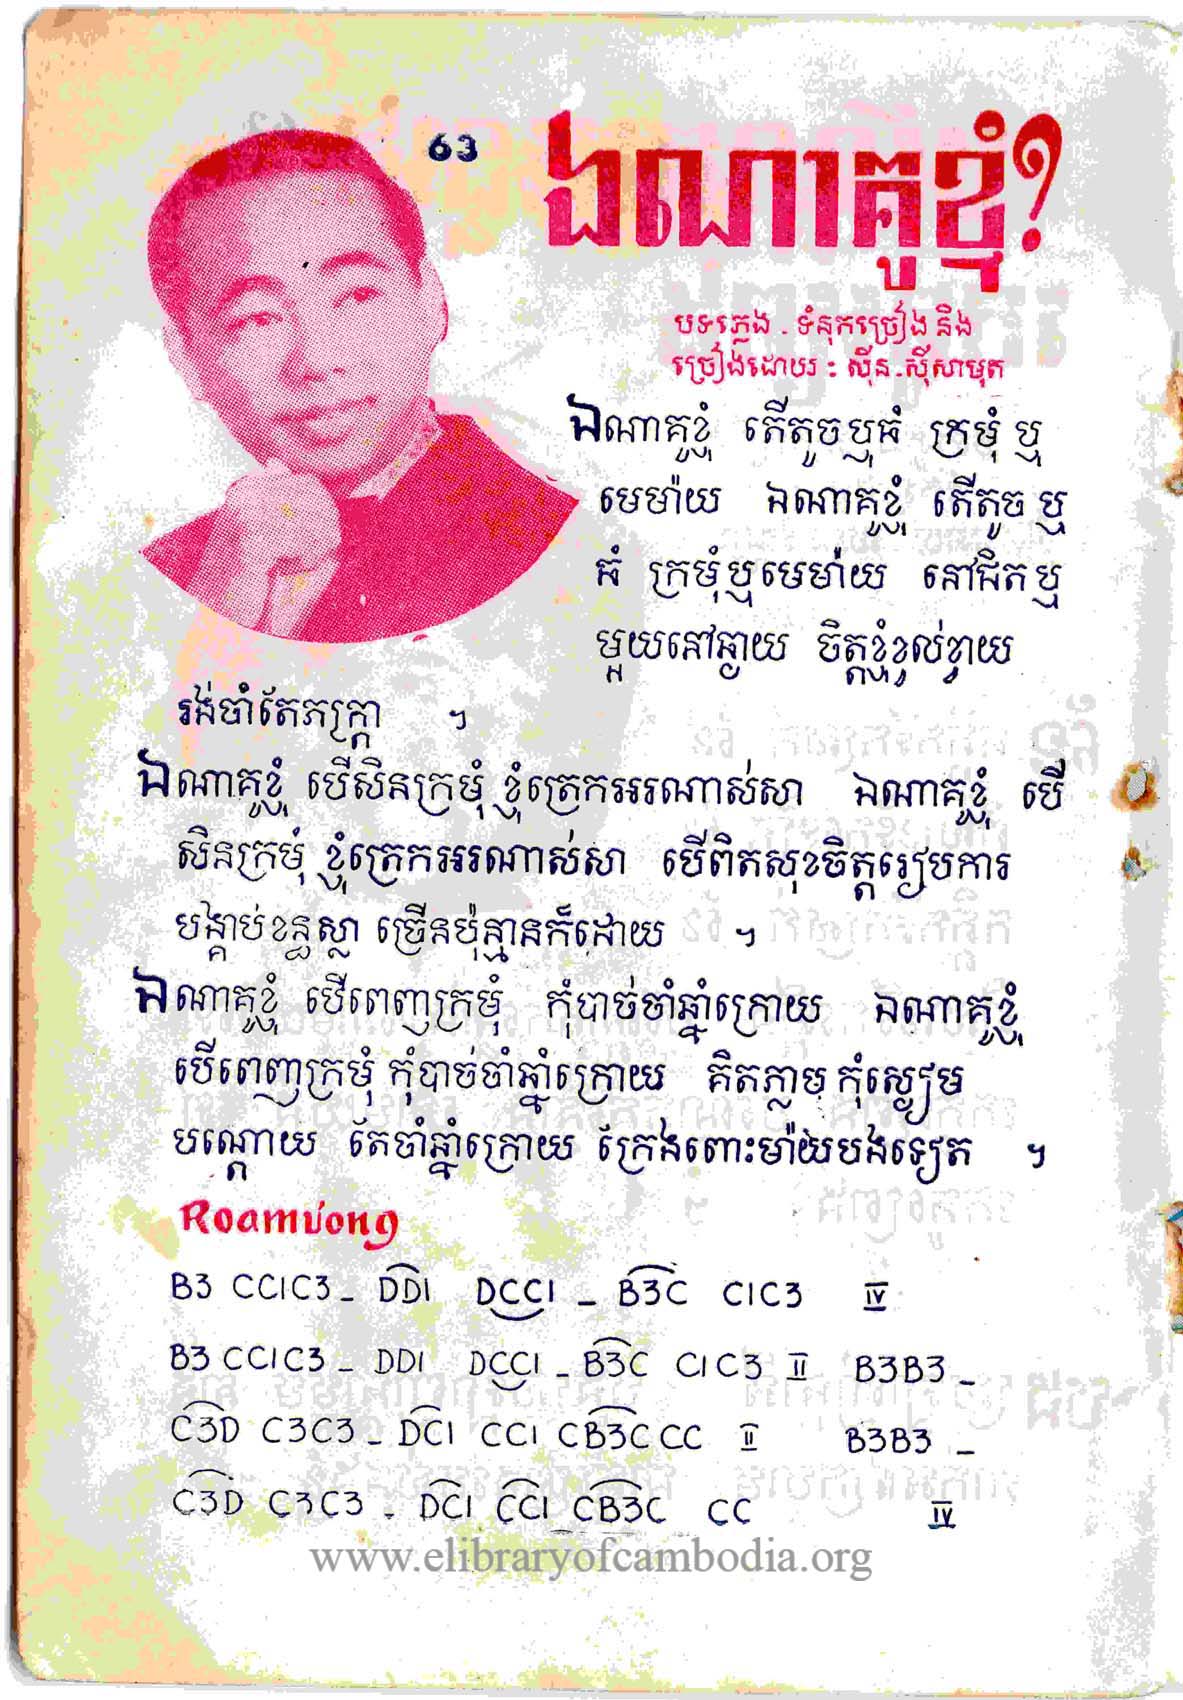 63
ឯណាគូខ្ញុំ?
បទភ្លេង . ទំនុកច្រៀង និង
ច្រៀងដោយ : ស៊ីន . ស៊ីសាមុត
ឯណាគូខ្ញុំ តើតូចឬធំ ក្រមុំ ឬ
មេម៉ាយ ឯណាគូខ្ញុំ តើតូច ឬ
ធំ ក្រមុំឬមេម៉ាយ នៅជិតឬ
មួយនៅឆ្ងាយ ចិត្តខ្ញុំខ្វល់ខ្វាយ
រង់ចាំតែភក្ត្រា ។
ឯណាគូខ្ញុំ បើសិនក្រមុំ ខ្ញុំត្រេកអរណាស់សា ឯណាគូខ្ញុំ បើ
សិនក្រមុំ ខ្ញុំត្រេកអរណាស់សា បើពិតសុខចិត្តរៀបការ
បង្គាប់ខន្ធស្លា ច្រើនប៉ុន្មានក៏ដោយ ។
ឯណាគូខ្ញុំ បើពេញក្រមុំ កុំបាច់ចាំឆ្នាំក្រោយ ឯណាគូខ្ញុំ
បើពេញក្រមុំ កុំបាច់ចាំឆ្នាំក្រោយ គិតភ្លាមៗ កុំស្ងៀម
បណ្តោយ តែចាំឆ្នាំក្រោយ ក្រែងពោះម៉ាយបងទៀត ។
Roamvong
B3 CC1C3 _ DD1 DCC1 _ B3C C1C3 IV
B3 CC1C3 _ DD1 DCC1 _ B3C C1C3 II B3B3 _
C3D C3C3 _ DC1 CC1 CB3CCC II B3B3 _
C3D C3C3 . DC1 CC1 CB3C CC IV
www.elibraryofcambodia.org